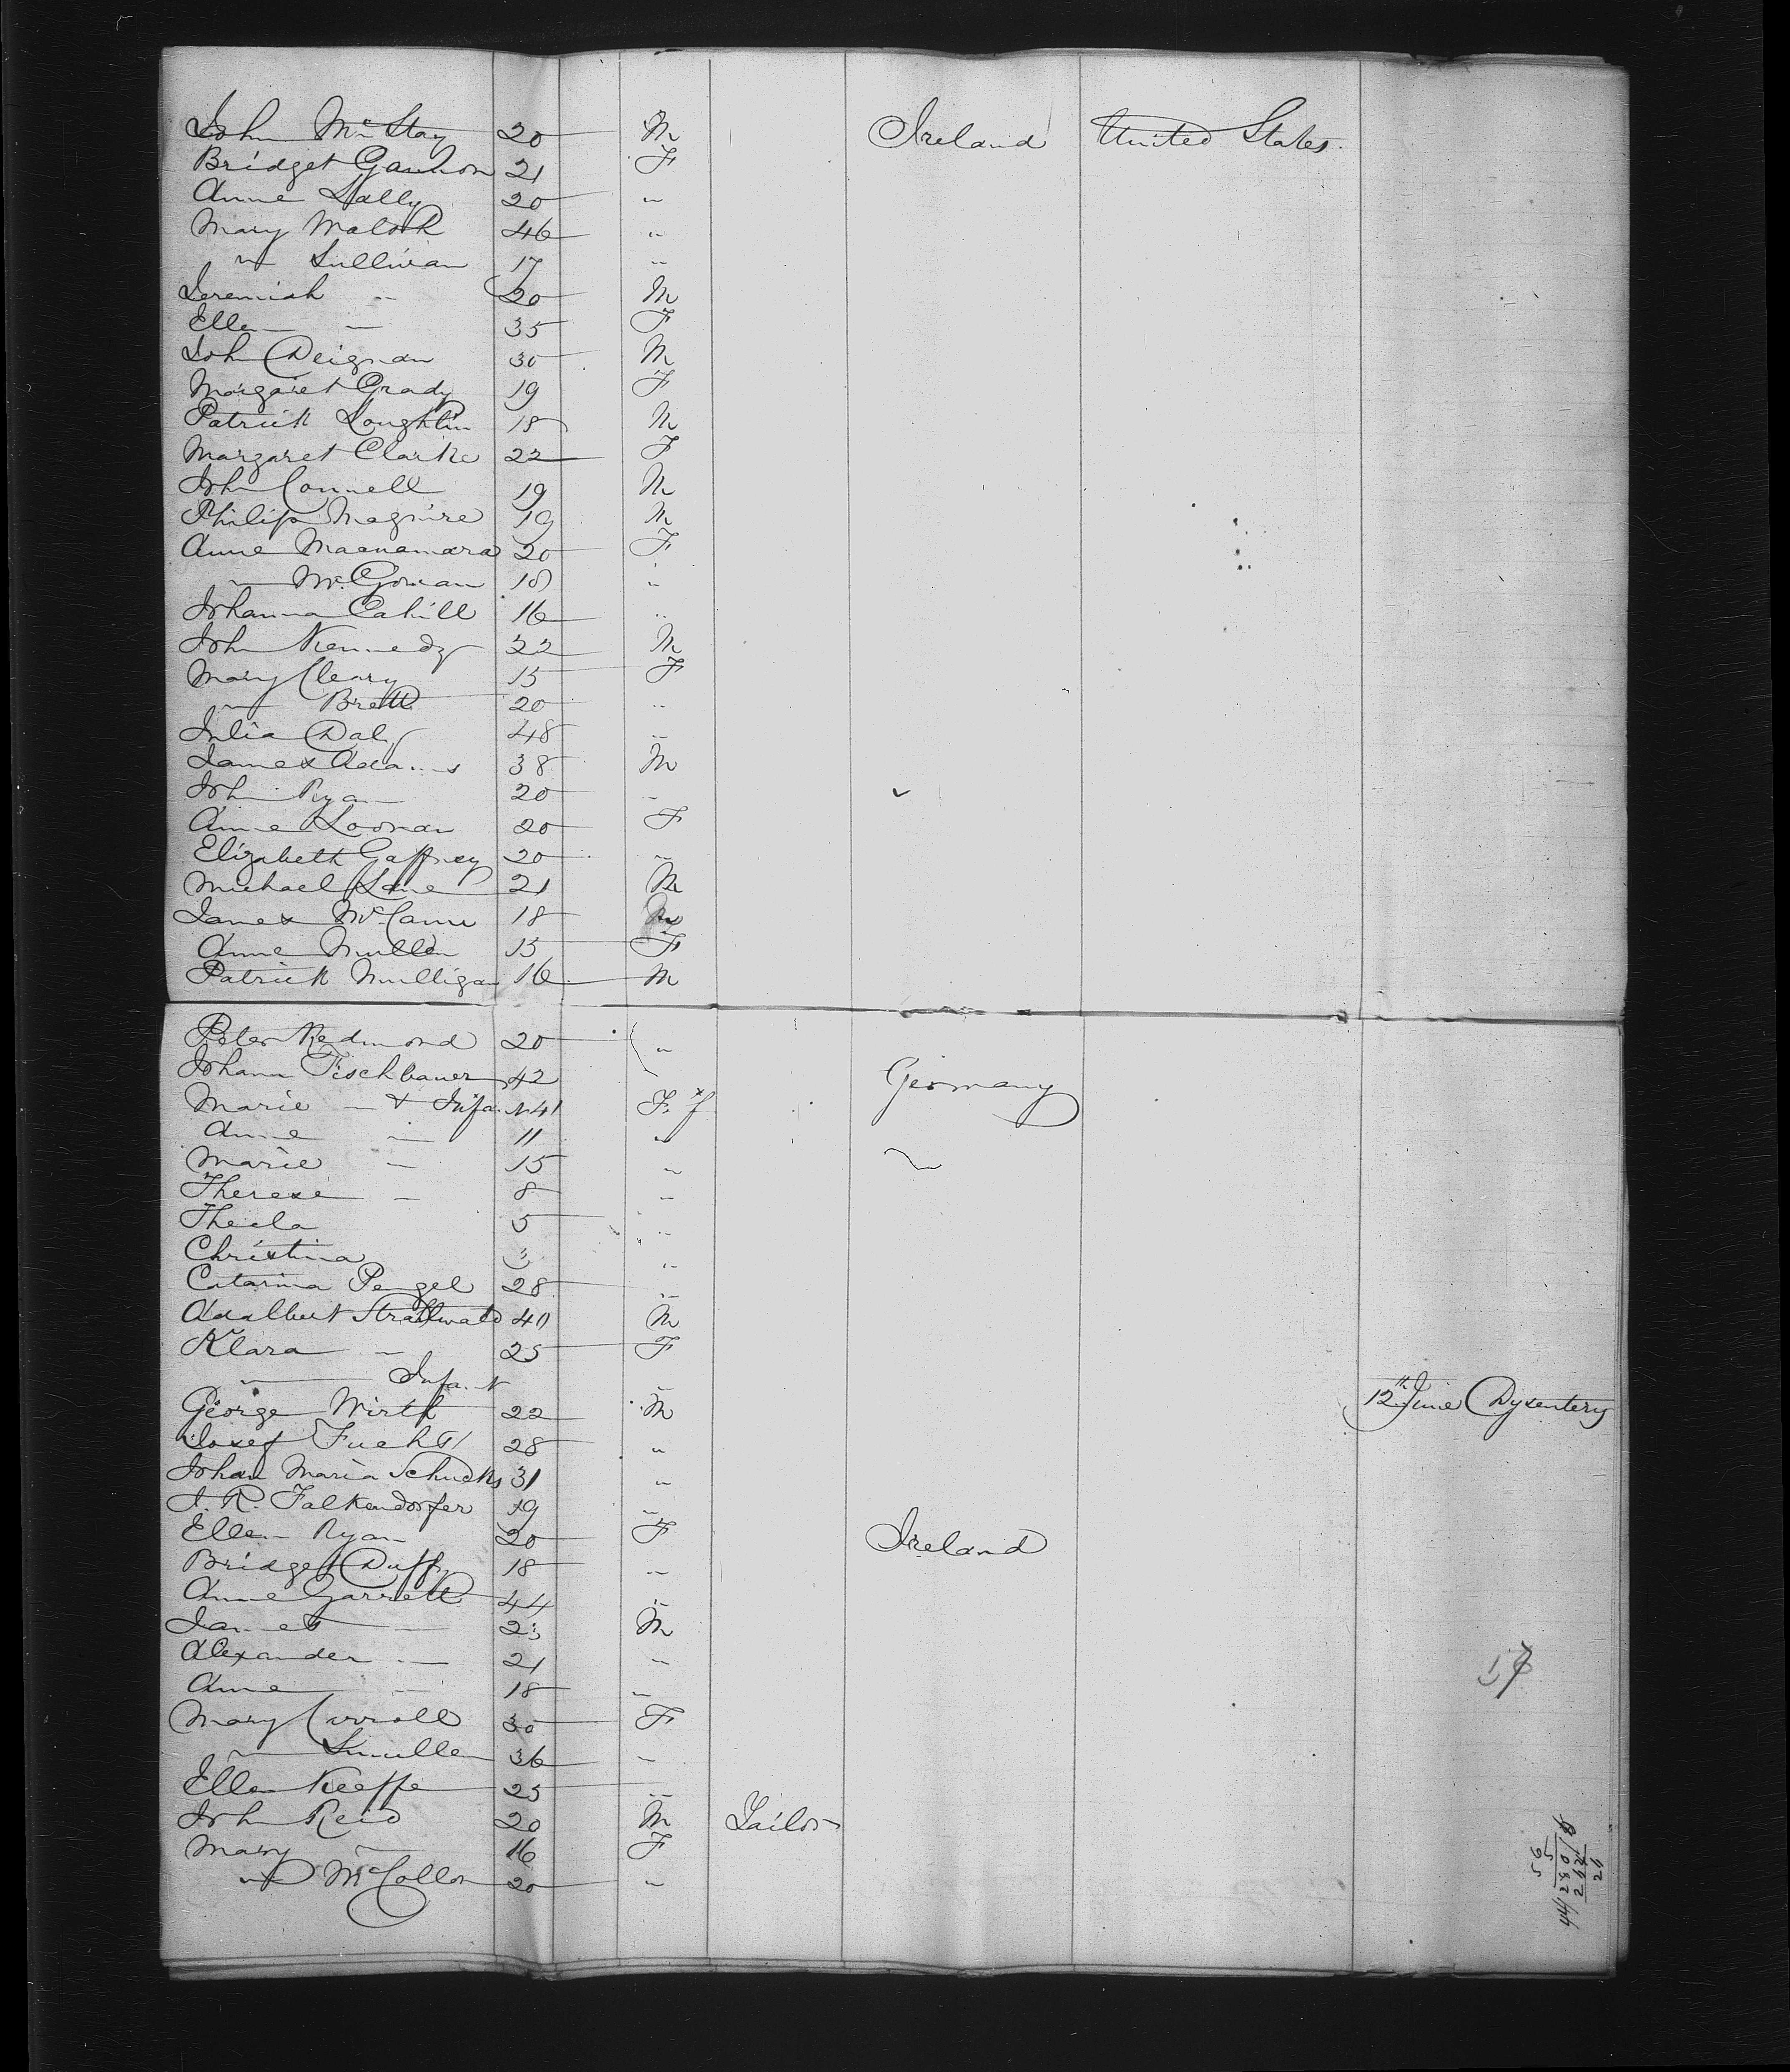 John McStay 20 M Ireland United States
Bridget Gannon 21 F
Anne Lally 20 "
Mary Walsh 46 "
" Sullivan 17 "
Jeremiah " 20 M
Ellen " 35 F
Joh Deignan 30 M
Margaret Grady 19 F
Patrick Loughlin 18 M
Margaret Clarke 22 F
John Connell 19 M
Philip Maguire 19 M
Anne Macnamara 20 F
" McGowan 18 "
Johanna Cahill 16 "
John Kennedy 22 M
Mary Cleary 15 F
" Brett 20 "
Julia Daly 48 "
James Adams 38 M
John Ryan 20 "
Anne Loonan 20 F
Elizabeth Gaffney 20 "
Michael Lane 21 M
James McCann 18 M
Anne Mullen 15 F
Patrick Mulligan 16 M
Peter Redmond 20 "
Johann Fischbauer 42 Germany
Marie " & Infant 41 F. f
Anne " 11 "
Marie " 15 " "
Therese " 8 "
Thecla 5 "
Christina 3 "
Catarina Pengel 28 "
Adalbert Strallwald 40 M
Klara " 25 F
" Infant " 12th June Dysentery
George Wirth 22 M
Josef Fuchs 28 "
Johan Maria Schucks 31 "
J. R. Falkendorfer 19 "
Ellen Ryan 20 F Ireland
Bridget Duffy 18 "
Anne Garrett 44 "
James " 23 M
Alexander " 21 "
Anne " 18 "
Mary Carroll 30 F
" Smullen 36 "
Ellen Keeffe 25 "
John Reid 20 M Tailor
Mary " 16 F
" McCollon 20 "